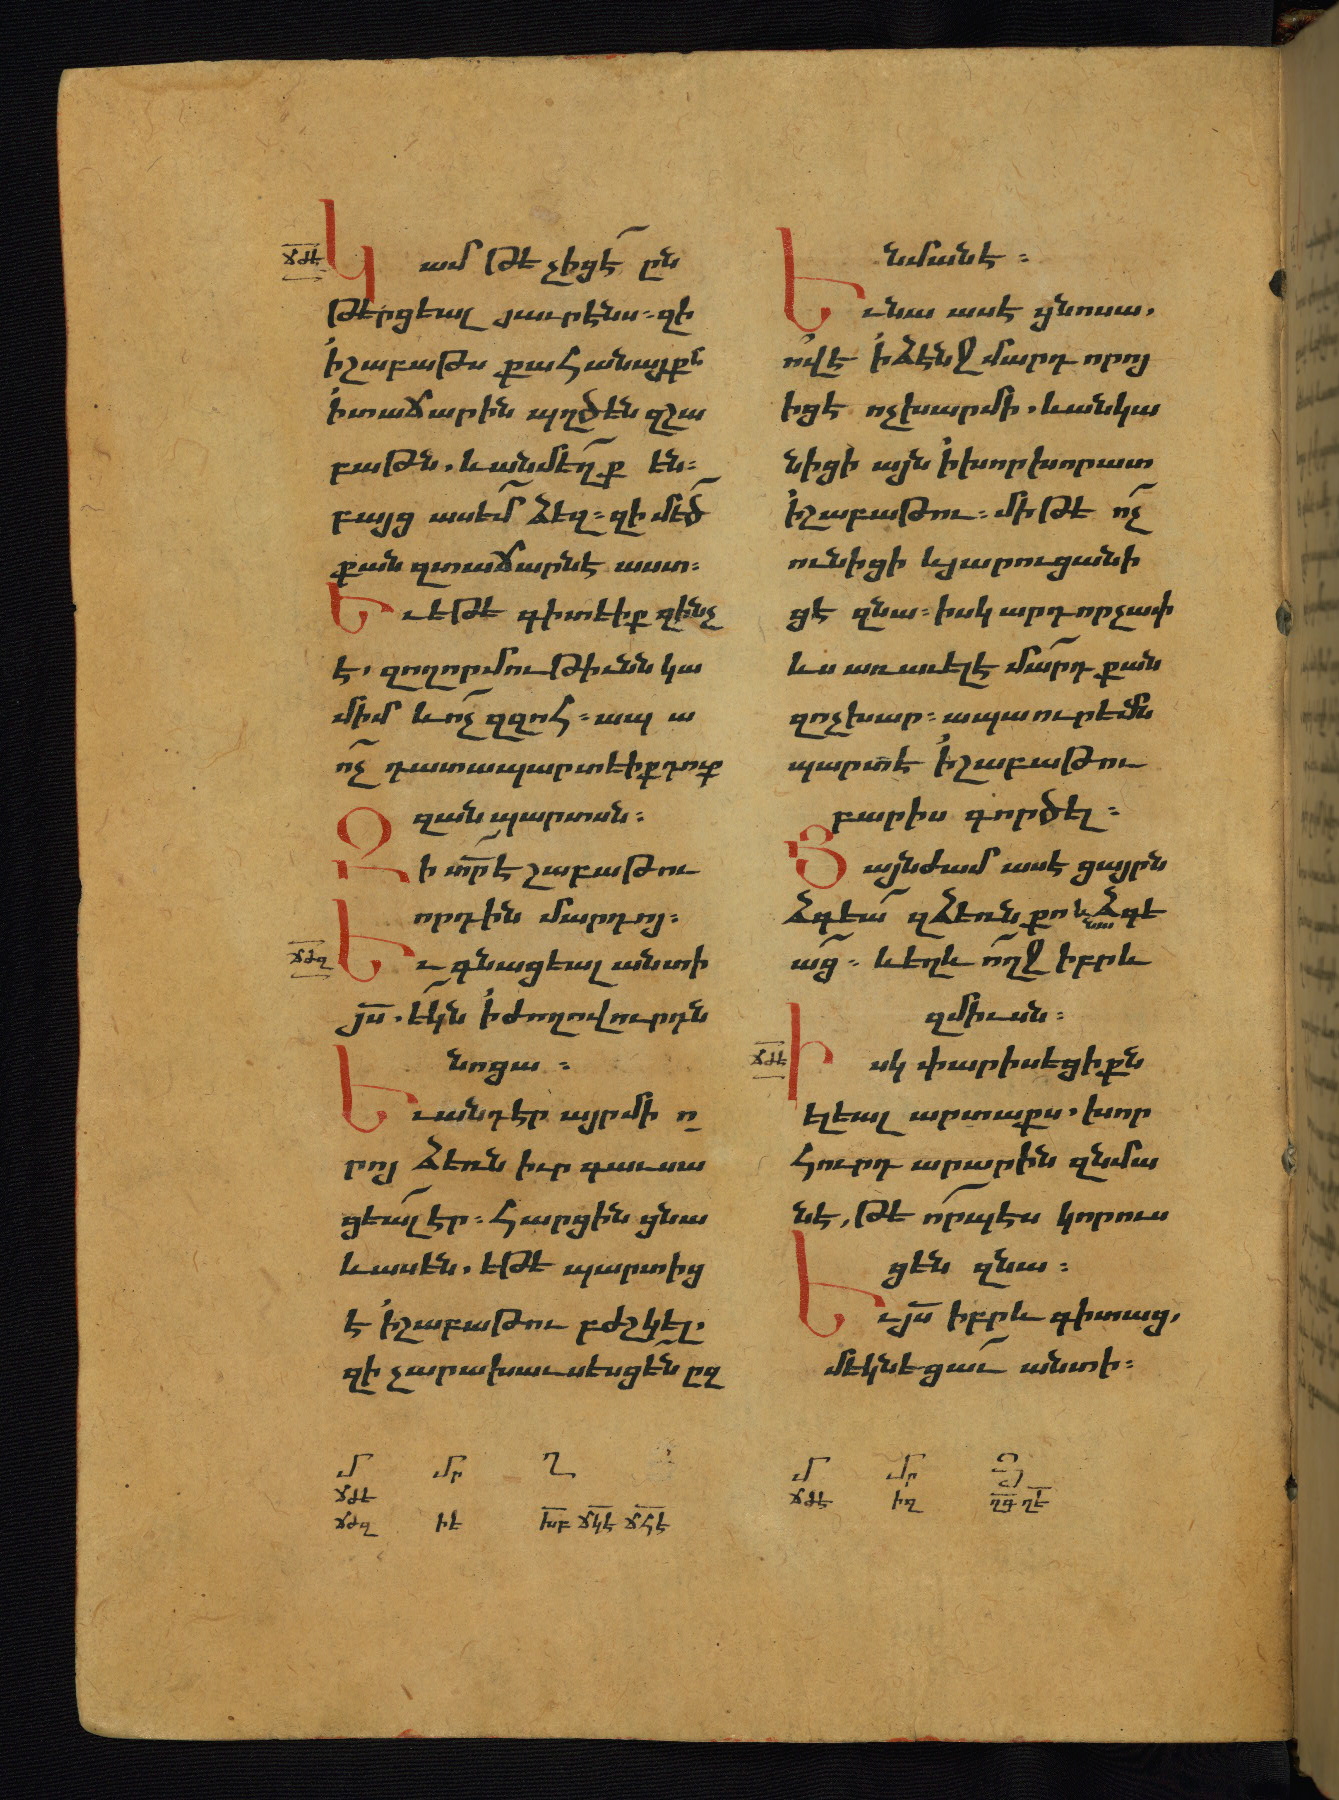 ՃԺԵ
Կամ թէ չիցէ՞ ըն
թերցեալ յաւրէնս։ զի
ի շաբաթս քահանայքն
ի տաճարին պղծեն զշա
բաթն, և անմեղք են։
բայց ասեմ ձեզ։ զի մեծ
քան զտաճարնէ աստ։
Եւ եթէ գիտէիք զինչ
է, զողորմութիւնն կա
միմ և ոչ զզոհ։ ապ ա
ոչ դատապարտէիք դուք
զանպարտսն։
Զի տր է շաբաթու
որդին մարդոյ։
ՃԺԶ
Եւ գնացեալ անտի
յս, եկն ի ժողովուրդն
նոցա։
Եւ անդ էր այր մի ո
րոյ ձեռն իւր գաւսա
ցեալ էր։ հարցին ցնա
և ասեն, եթէ պարտիցի
է ի շաբաթու բժշկել,
զի չարախաւսեսցեն ըզ
նմանէ։
Եւ նա ասէ ցնոսա,
ո՞վ է ի ձէնջ մարդ որոյ
իցէ ոչխար մի, և անկա
նիցի այն ի խորխորատ
ի շաբաթու։ մի թէ ոչ
ունիցի և յարուցանի
ցէ զնա։ իսկ արդ որչափ
ևս առաւելէ մարդ քան
զոչխար։ ապա ուրեմն
պարտ է ի շաբաթու
բարիս գործել։
Յայնժամ ասէ ցայրն
ձգեա զձեռն քո և ձգե
նա
աց։ և եղև ողջ իբրև
զմիւսն։
ՃԺԷ
Իսկ փարիսեցիքն
ելեալ արտաքս, խոր
հուրդ արարին զնմա
նէ, թէ որպէս կորուս
ցեն զնա։
Եւ յս իբրև գիտաց,
մեկնեցաւ անտի։
մ մր Ղ
ՃԺԵ
ՃԺԶ ԻԵ ԽԲ ՃԿԷ ՃՀԷ
մ մր
ՃԺԷ ԻԶ ՂԳ ՂԵ